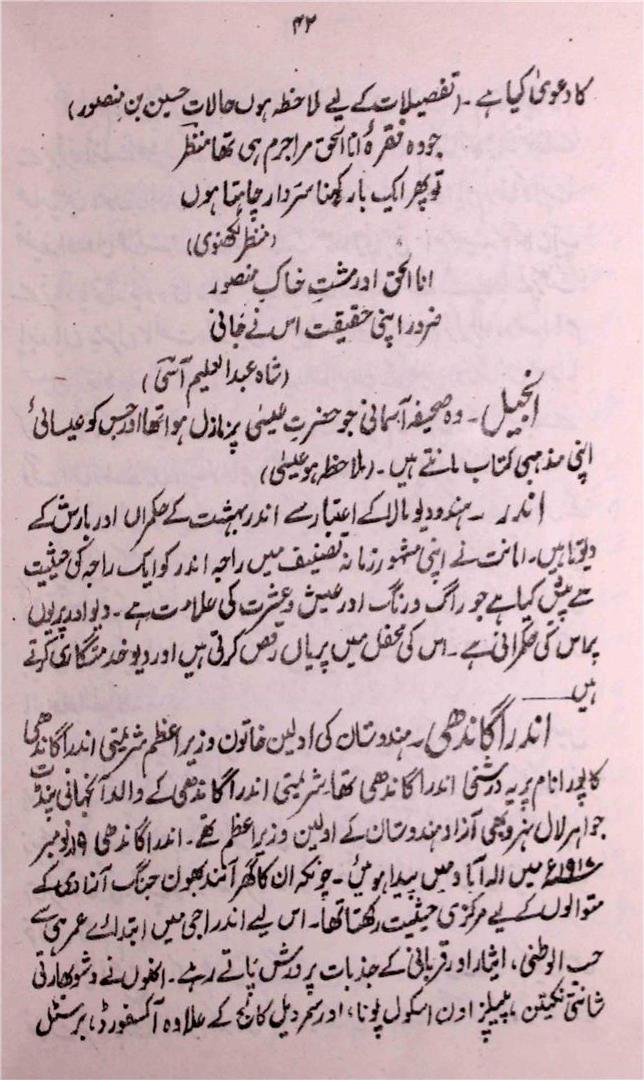 ۴۲
کا دعویٰ کیا ہے۔ (تفصیلات کے لیے ملاحظہ ہوں حالات حسین بن منصور)
جو وہ فقرۂ انا الحق مرا جرم ہی تھا منظر
تو پھر ایک بار کہنا سرِ دار چاہتا ہوں
(منظر لکھنوی)
انا الحق اور مشتِ خاکِ منصور
ضرور اپنی حقیقت اس نے جانی
(شاہ عبدالعلیم آسی)
انجیل۔ وہ صحیفۂ آسمانی جو حضرت عیسیٰ پر نازل ہوا تھا اور جس کو عیسائی
اپنی مذہبی کتاب مانتے ہیں۔ (ملاحظہ ہو عیسیٰ)
اندر۔ ہندو دیو مالا کے اعتبار سے اندر بہشت کے حکمراں اور بارش کے
دیوتا ہیں۔ امانت نے اپنی مشہور زمانہ تصنیف میں راجہ اندر کو ایک راجہ کی حیثیت
سے پیش کیا ہے جو راگ و رنگ اور عیش و عشرت کی علامت ہے۔ دیو اور پریوں
پر اس کی حکمرانی ہے۔ اس کی محفل میں پریاں رقص کرتی ہیں اور دیو خدمتگاری کرتے
ہیں
اندرا گاندھی۔ ہندوستان کی اولین خاتون وزیر اعظم شریمتی اندرا گاندھی
کا پورا نام پریہ درشنی اندرا گاندھی تھا۔ شریمتی اندرا گاندھی کے والد آنجہانی پنڈت
جواہر لال نہرو بھی آزاد ہندوستان کے اولین وزیر اعظم تھے۔ اندرا گاندھی ۱۹ نومبر
۱۹۱۷ء میں الہ آباد میں پیدا ہوئیں۔ چونکہ ان کا گھر آنند بھون جنگ آزادی کے
متوالوں کے لیے مرکزی حیثیت رکھتا تھا۔ اس لیے اندرا جی میں ابتدائے عمر ہی سے
حب الوطنی، ایثار اور قربانی کے جذبات پرورش پاتے رہے۔ انھوں نے وشو بھارتی
شانتی نکیتن، پیپلز اون اسکول پونا، اور سمر ویل کالج کے علاوہ آکسفورڈ، برسٹل